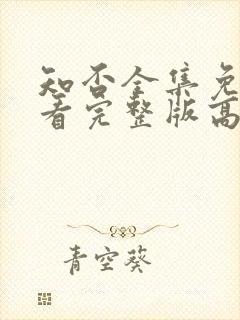 知否全集免
看完整版高
青空葵